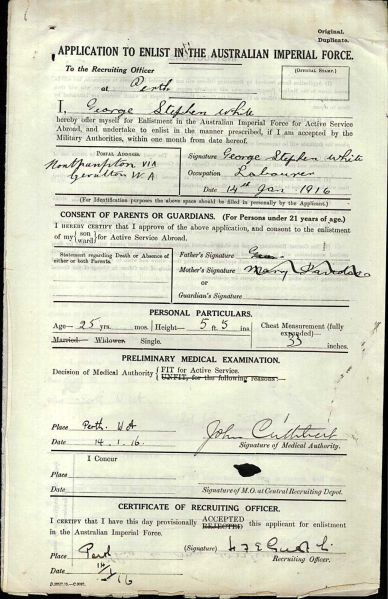 Original.
Duplicate.
APPLICATION TO ENLIST IN THE AUSTRALIAN IMPERIAL FORCE.
To the Recruiting Officer
(OFFICIAL STAMP.)
at Perth
I, George Stephen White
hereby offer myself for Enlistment in the Australian Imperial Force for Active Service
Abroad, and undertake to enlist in the manner prescribed, if I am accepted by the
Military Authorities, within one month from date hereof.
POSTAL ADDRESS.
Northampton VIA
Geralton W A
Signature George Stephen White
Occupation Labourer
Date 14th Jan 1916
(For Identification purposes the above space should be filled in personally by the Applicant).
CONSENT OF PARENTS OR GUARDIANS. (For Persons under 21 years of age.)
I HEREBY CERTIFY that I approve of the above application, and consent to the enlistment
of my (son ward) for Active Service Abroad.
Statement regarding Death or Absence of
either or both Parents.
Father's Signature
Mother's Signature Mary
or
Guardian's Signature
PERSONAL PARTICULARS.
Age— 25 yrs. mos. Height— 5 ft 5 ins.
Chest Measurement (fully
expanded)—
33 inches.
Married. Widower. Single.
PRELIMINARY MEDICAL EXAMINATION.
Decision of Medical Authority { FIT for Active Service.
UNFIT, for the following reasons:—
Place Perth. W A
Date 14.1.16.
John Cuthbert
Signature of Medical Authority.
I Concur
Place
Date
Signature of M.O. at Central Recruiting Depot.
CERTIFICATE OF RECRUITING OFFICER.
I CERTIFY that I have this day provisionally ACCEPTED REJECTED this applicant for enlistment
in the Australian Imperial Force.
Place
(Signature)
Recruiting Officer.
Date 14/1/16